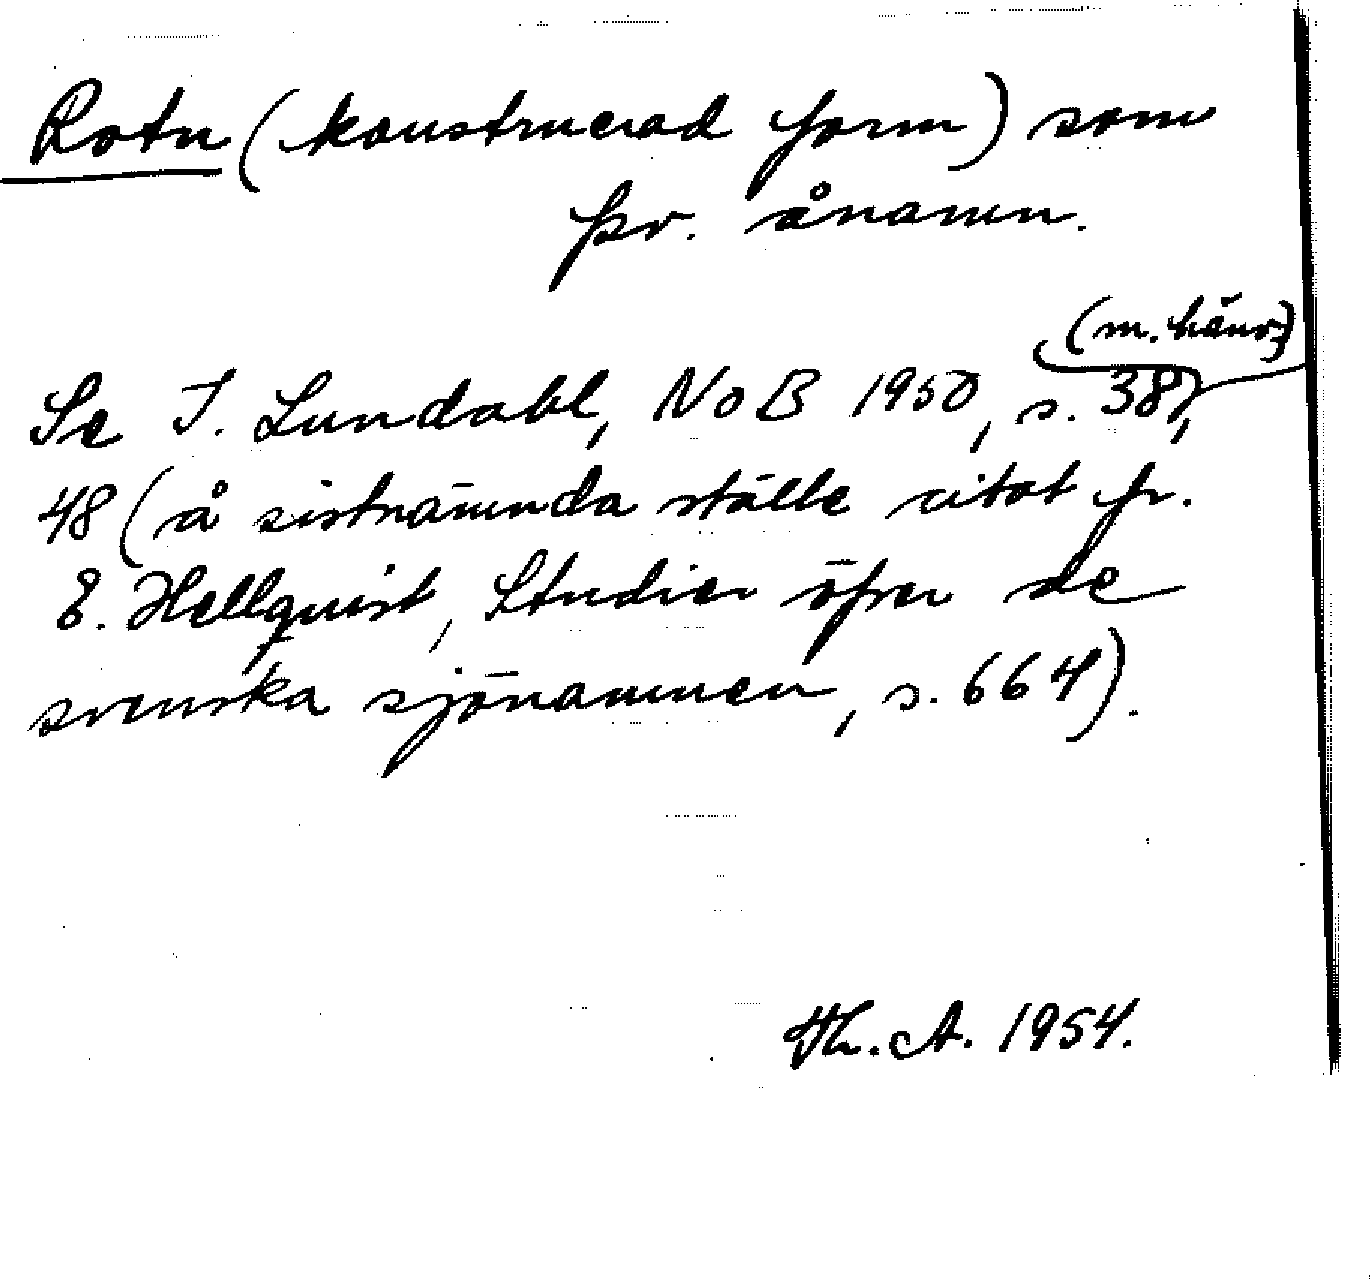 Rotn (konstruerad form) som
fsv. ånamn.
(m. hänv.)
Se I. Lundahl, NoB 1950, s. 38,
48 (å sistnämnda ställe citat fr.
E. Hellquist, Studier öfver de
svenska sjönamnen, s. 664).
Th. A. 1954.